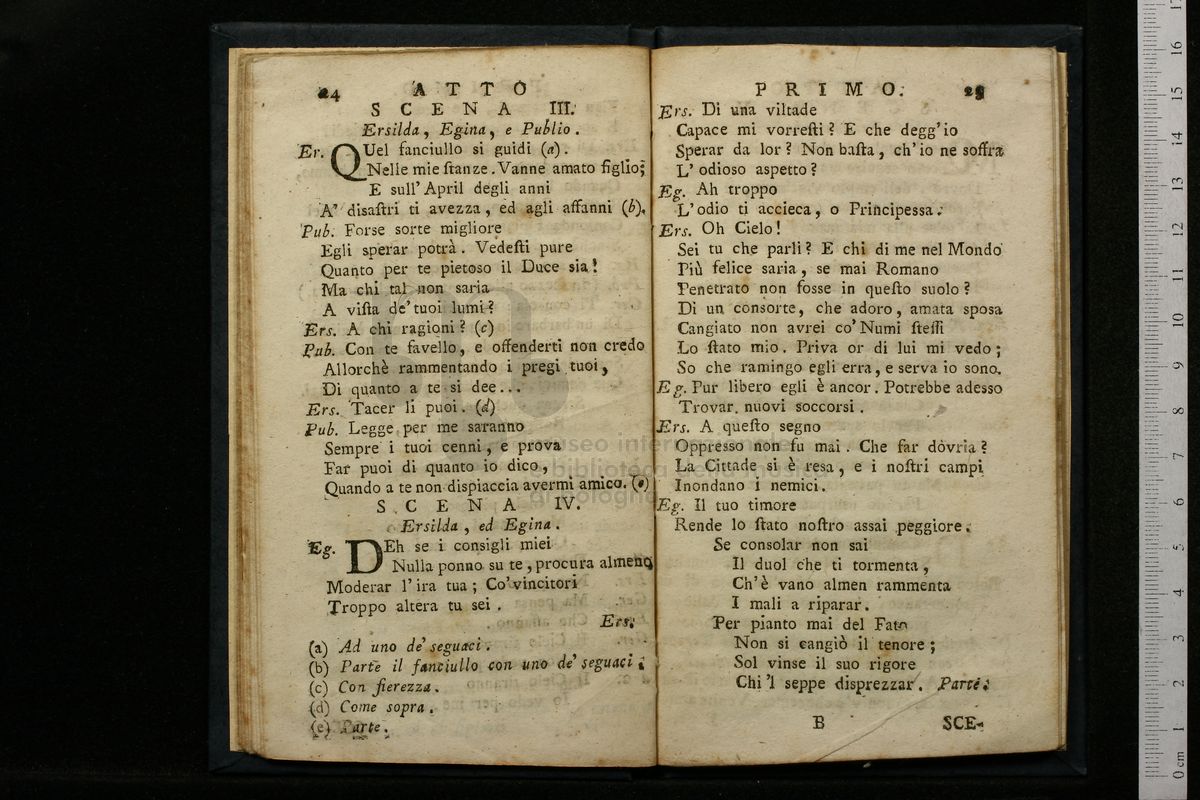 24 ATTO
SCENA III.
Ersilda, Egina, e Publio.
Er. QUel fanciullo si guidi (a).
Nelle mie ſtanze. Vanne amato figlio;
E sull' April degli anni
A' disaſtri ti avezza, ed agli affanni (b).
Pub. Forse sorte migliore
Egli sperar potrà. Vedeſti pure
Quanto per te pietoso il Duce sia!
Ma chi tal non saria
A viſta de' tuoi lumi?
Ers. A chi ragioni? (c)
Pub. Con te favello, e offenderti non credo
Allorchè rammentando i pregi tuoi,
Di quanto a te si dee...
Ers. Tacer li puoi. (d)
Pub. Legge per me saranno
Sempre i tuoi cenni, e prova
Far puoi di quanto io dico,
Quando a te non dispiaccia avermi amico. (e)
SCENA IV.
Ersilda, ed Egina.
Eg. DEh se i consigli miei
Nulla ponno su te, procura almeno
Moderar l' ira tua; Co' vincitori
Troppo altera tu sei.
Ers.
(a) Ad uno de' seguaci.
(b) Parte il fanciullo con uno de' seguaci.
(c) Con fierezza.
(d) Come sopra.
(e) Parte.
PRIMO. 25
Ers. Di una viltade
Capace mi vorreſti? E che degg' io
Sperar da lor? Non baſta, ch' io ne soffra
L' odioso aspetto?
Eg. Ah troppo
L' odio ti accieca, o Principessa.
Ers. Oh Cielo!
Sei tu che parli? E chi di me nel Mondo
Più felice saria, se mai Romano
Penetrato non fosse in queſto suolo?
Di un consorte, che adoro, amata sposa
Cangiato non avrei co' Numi ſteſſi
Lo ſtato mio. Priva or di lui mi vedo;
So che ramingo egli erra, e serva io sono.
Eg. Pur libero egli è ancor. Potrebbe adesso
Trovar nuovi soccorsi.
Ers. A queſto segno
Oppresso non fu mai. Che far dovria?
La Cittade si è resa, e i noſtri campi
Inondano i nemici.
Eg. Il tuo timore
Rende lo ſtato noſtro assai peggiore.
Se consolar non sai
Il duol che ti tormenta,
Ch' è vano almen rammenta
I mali a riparar.
Per pianto mai del Fato
Non si cangiò il tenore;
Sol vinse il suo rigore
Chi 'l seppe disprezzar. Parte.
B SCE-
museo internazionale
biblioteca della musica
di bologna
0 cm 1 2 3 4 5 6 7 8 9 10 11 12 13 14 15 16 17